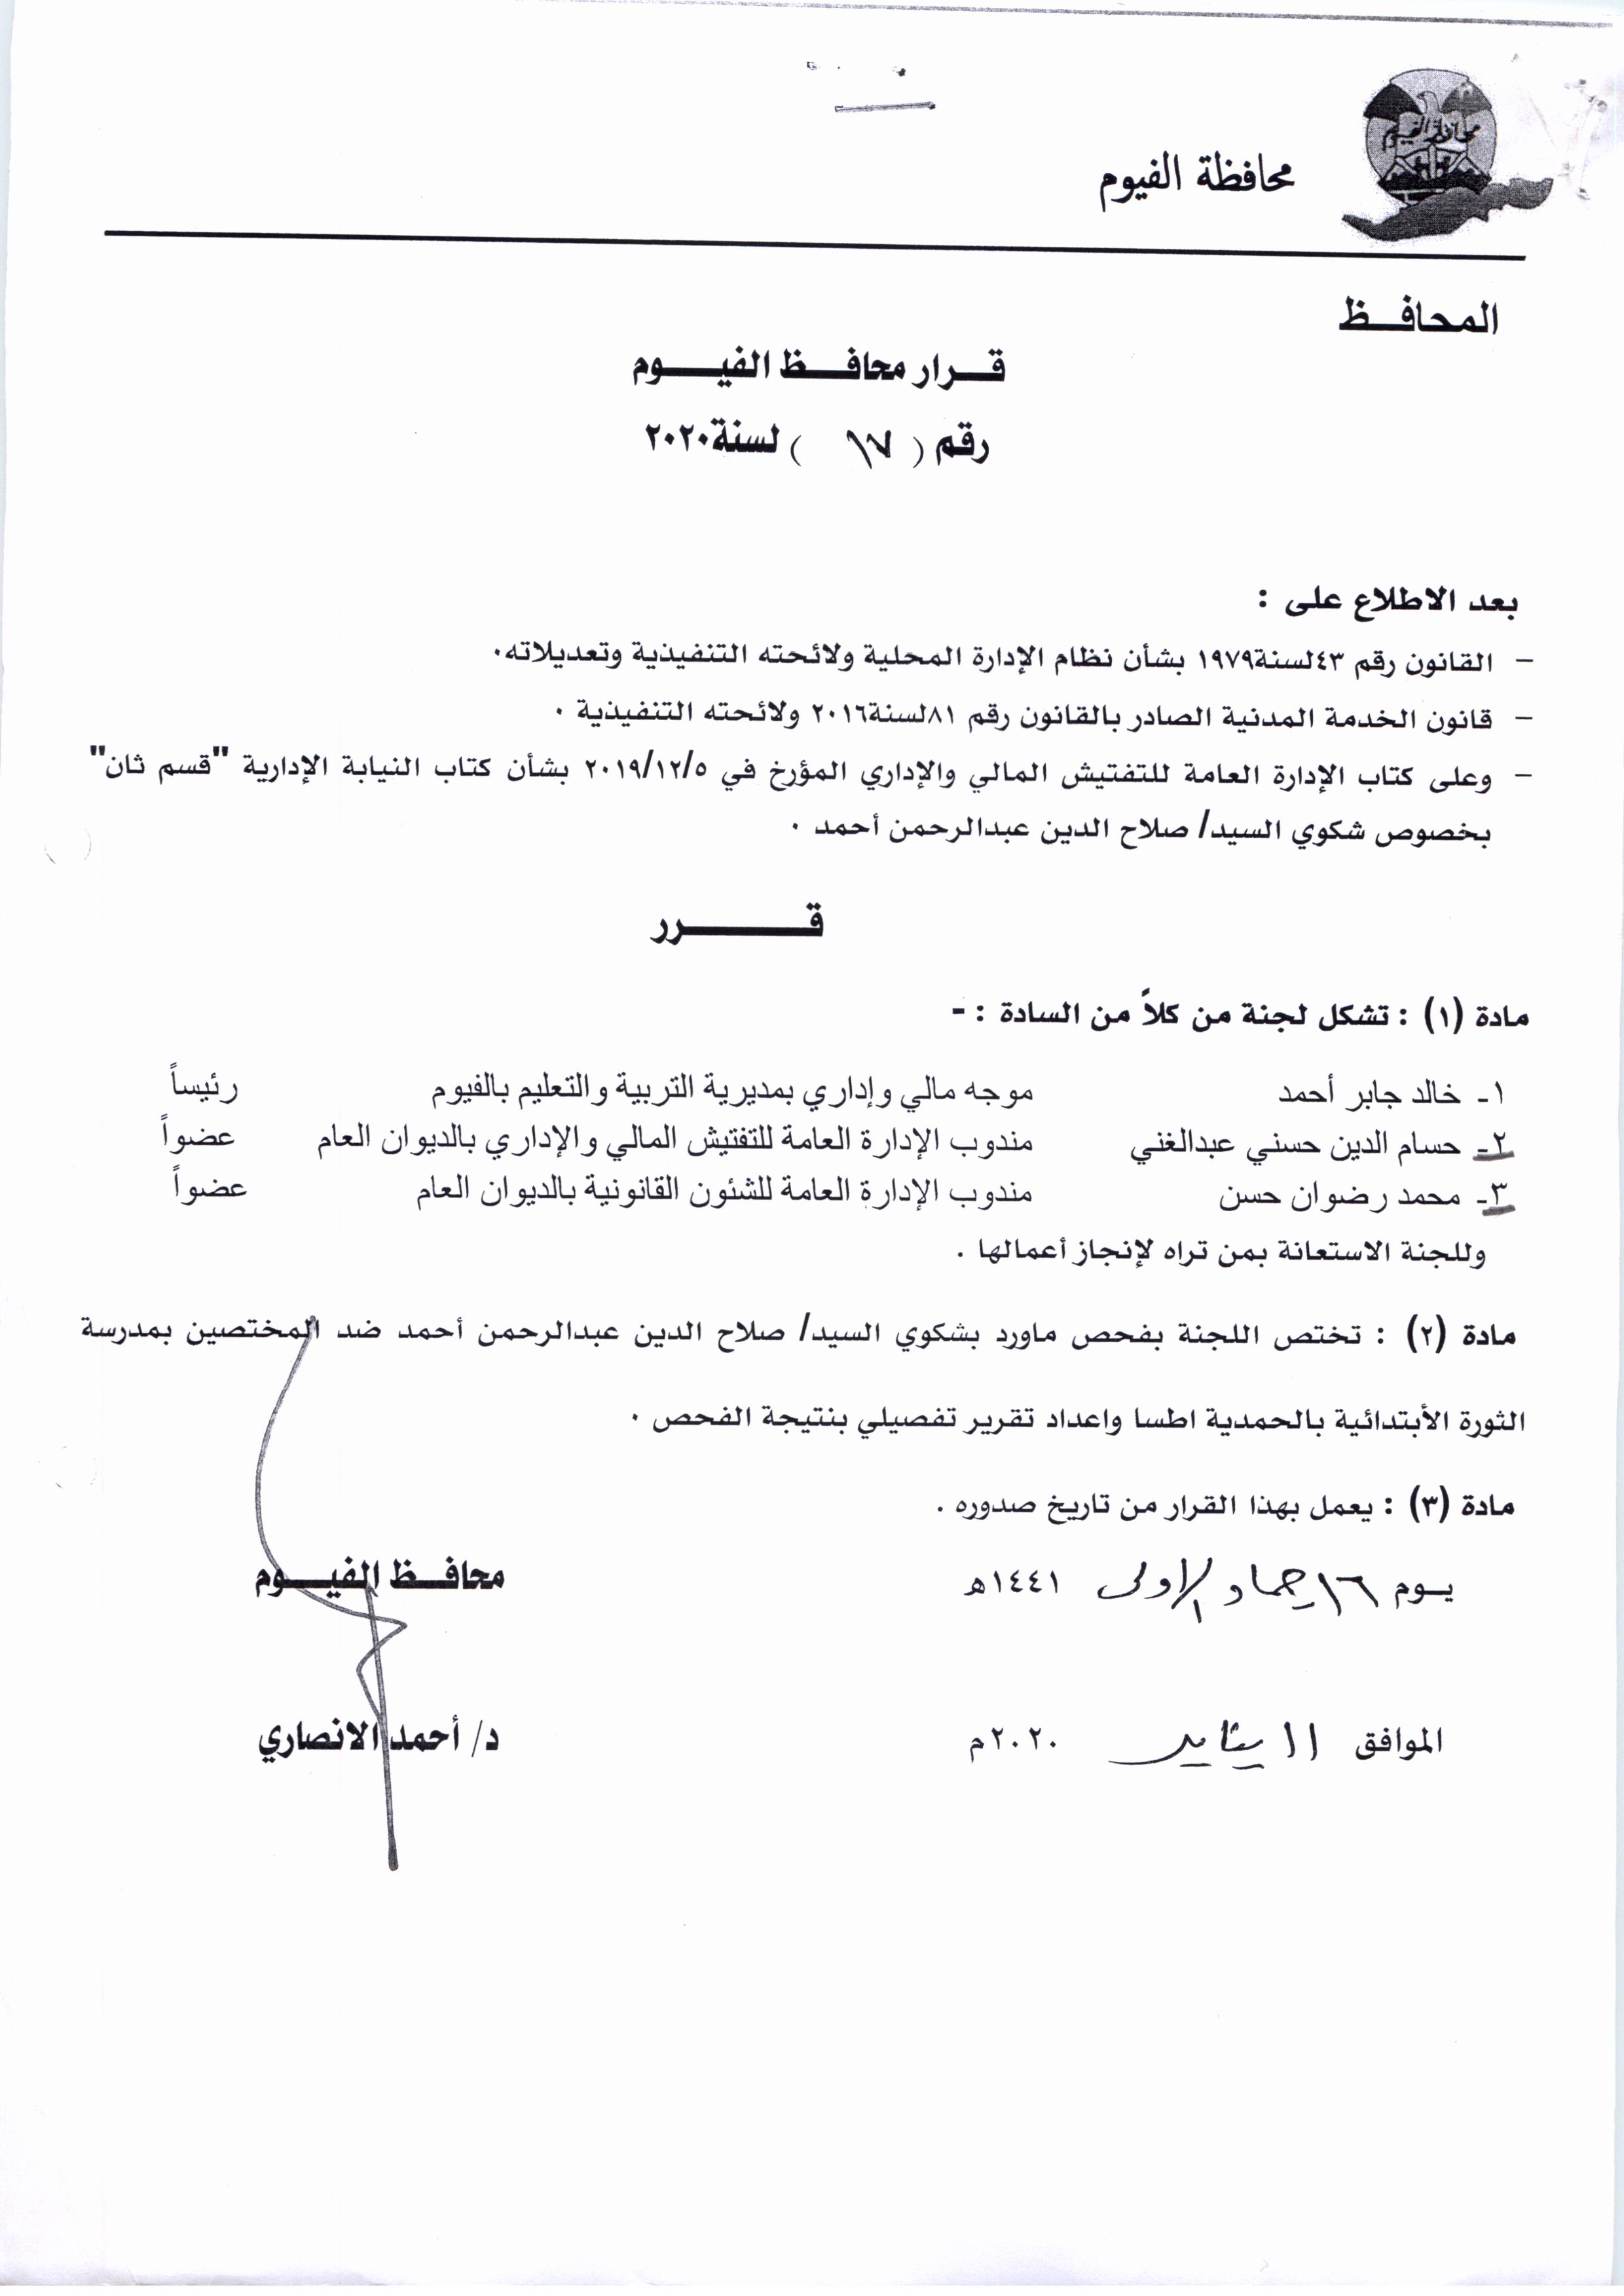 محافظة الفيوم
محافظة الفيوم
المحافظ
قرار محافظ الفيوم
رقم ( ١٧ ) لسنة٢٠٢٠
بعد الاطلاع على :
- القانون رقم ٤٣لسنة١٩٧٩ بشأن نظام الإدارة المحلية ولائحته التنفيذية وتعديلاته٠
- قانون الخدمة المدنية الصادر بالقانون رقم ٨١لسنة٢٠١٦ ولائحته التنفيذية ٠
- وعلى كتاب الإدارة العامة للتفتيش المالي والإداري المؤرخ في ٢٠١٩/١٢/٥ بشأن كتاب النيابة الإدارية "قسم ثان"
بخصوص شكوي السيد/ صلاح الدين عبدالرحمن أحمد ٠
قرر
مادة (١) : تشكل لجنة من كلاً من السادة : -
١- خالد جابر أحمد موجه مالي وإداري بمديرية التربية والتعليم بالفيوم رئيساً
٢- حسام الدين حسني عبدالغني مندوب الإدارة العامة للتفتيش المالي والإداري بالديوان العام عضواً
٣- محمد رضوان حسن مندوب الإدارة العامة للشئون القانونية بالديوان العام عضواً
وللجنة الاستعانة بمن تراه لإنجاز أعمالها .
مادة (٢) : تختص اللجنة بفحص ماورد بشكوي السيد/ صلاح الدين عبدالرحمن أحمد ضد المختصين بمدرسة
الثورة الأبتدائية بالحمدية اطسا واعداد تقرير تفصيلي بنتيجة الفحص ٠
مادة (٣) : يعمل بهذا القرار من تاريخ صدوره .
يوم ١٦ جماد الاولى ١٤٤١هـ محافظ الفيوم
الموافق ١١ يناير ٢٠٢٠م د/ أحمد الانصاري